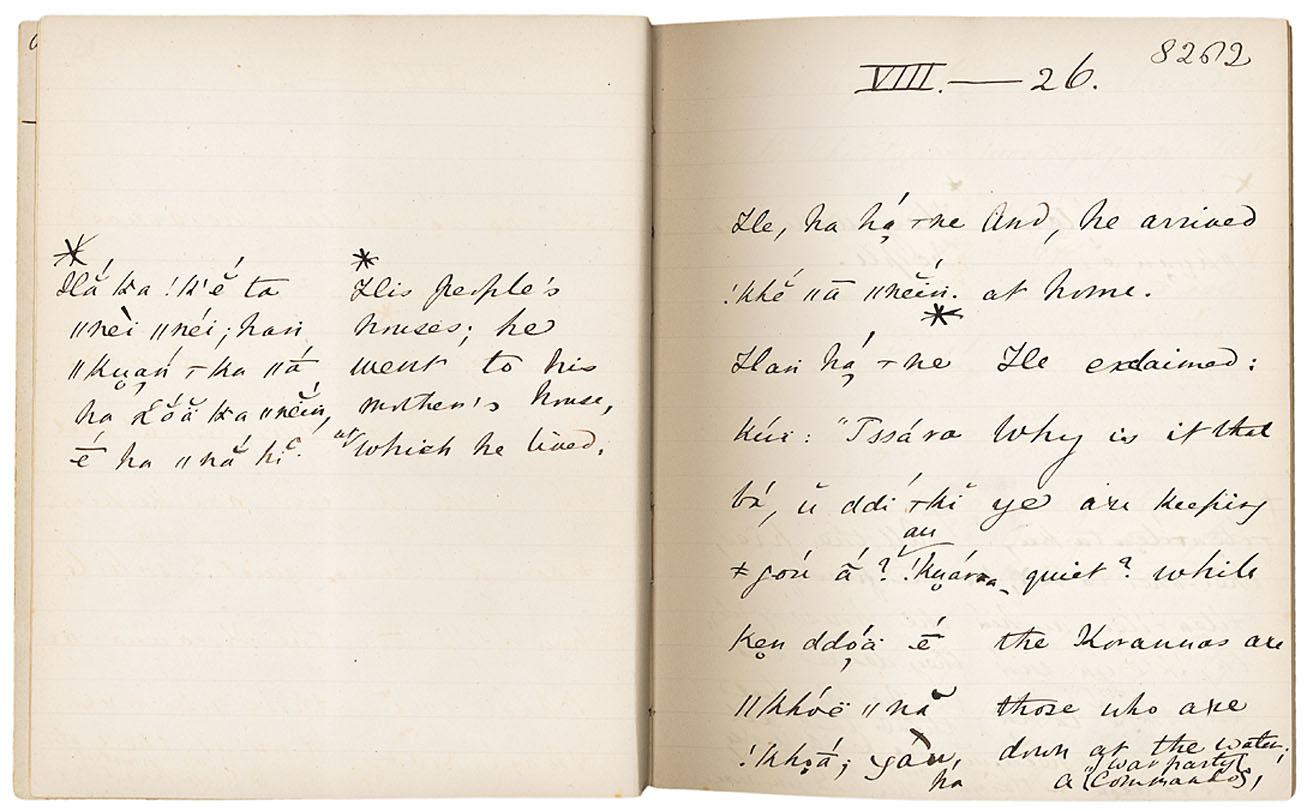 *
Hă ka !k'é ta
ǁnèi ǁnéi; han
ǁkuań ka ǁá
ha ka ǁnĕin,
é ha ǁnă hi.
*
His people's
houses; he
went to his
mother's house,
at which he lived.
8262
VIII. — 26.
He, ha há ne And, he arrived
!khĕ ǁā ǁnĕin. at home.
*
Han há ne He exclaimed:
kúi: "Tssára Why is it that
bá, ŭ ddí kĭ ye are keeping
au
ǂgóu ā? quiet? while
ken ddóä é the Korannas are
ǁkhóë ǁnă those who are
!khoā́; down at the water;
ha a "war party
(Commando),